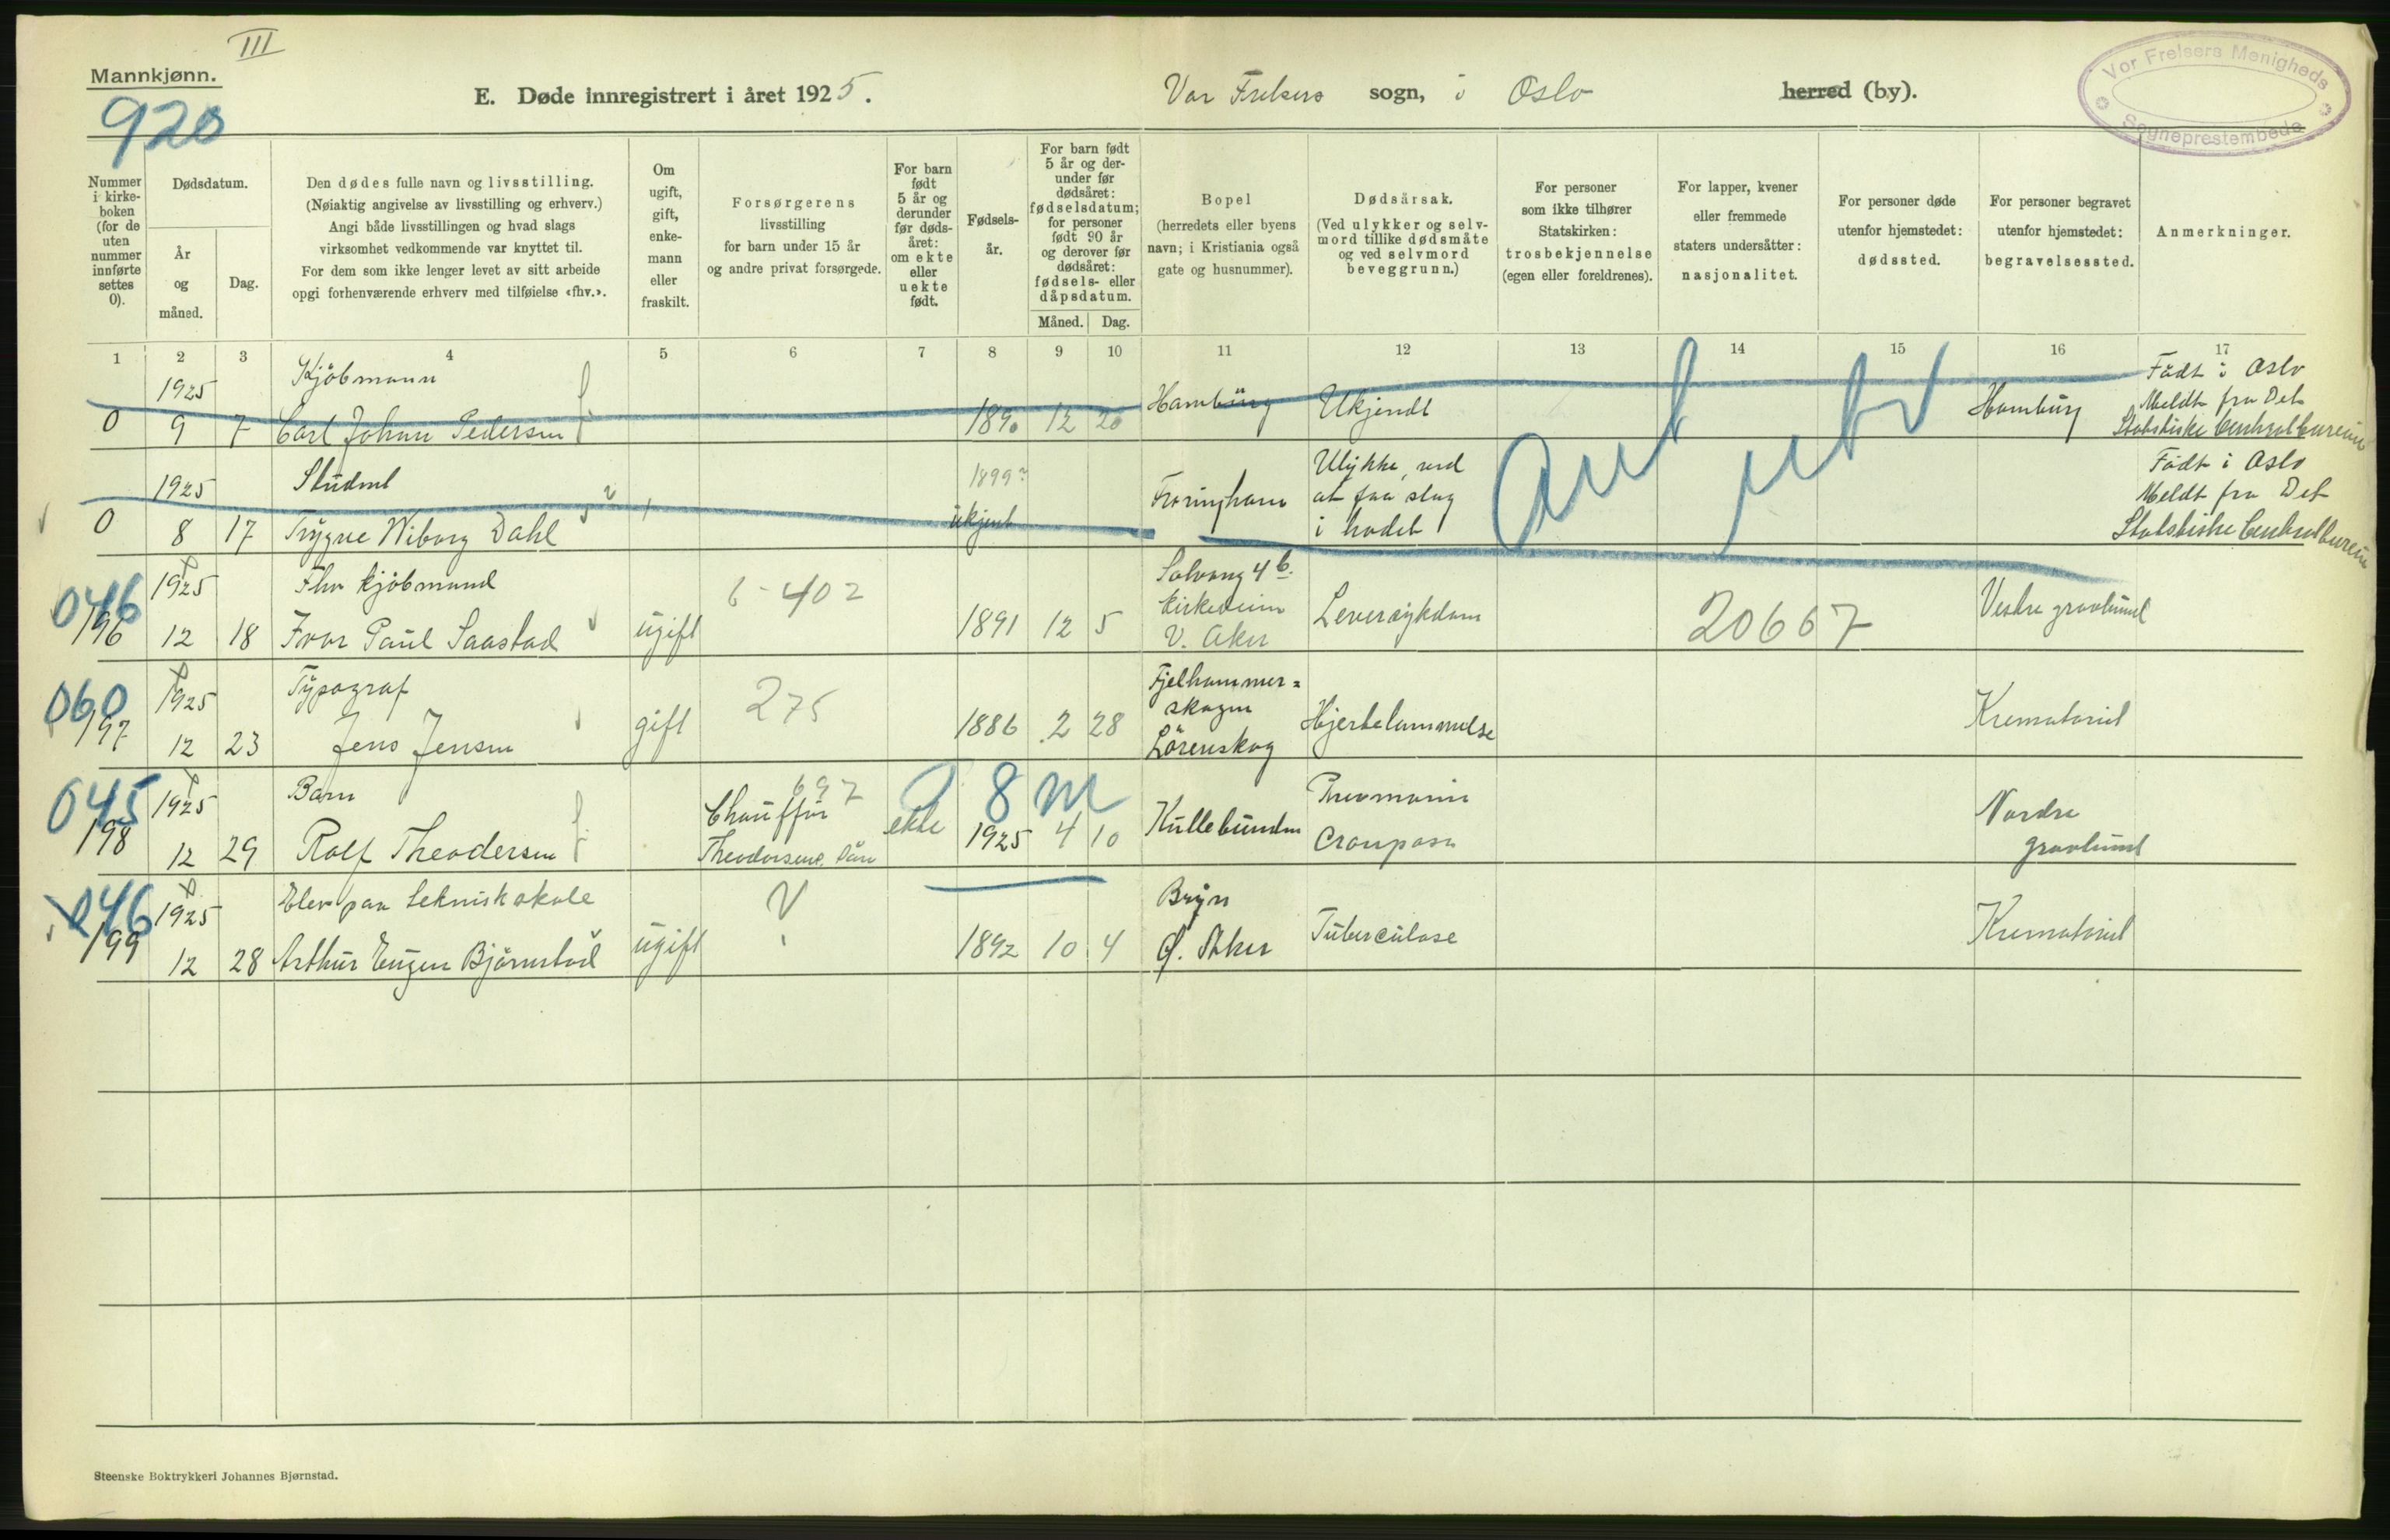 III
Mannkjønn.
920
E. Døde innregistrert i året 1925.
Vor Frelsers sogn, i Oslo herred (by).
Vor Frelsers Menigheds
Sogneprestembede
Nummer i kirkeboken (for de uten nummer innførte settes 0).
Dødsdatum.
År og måned.
Dag.
Den dødes fulle navn og livsstilling.
(Nøiaktig angivelse av livsstilling og erhverv.)
Angi både livsstillingen og hvad slags
virksomhet vedkommende var knyttet til.
For dem som ikke lenger levet av sitt arbeide
opgi forhenværende erhverv med tilføielse «fhv.».
Om ugift, gift, enkemann eller fraskilt.
Forsørgerens
livsstilling
for barn under 15 år
og andre privat forsørgede.
For barn født 5 år og derunder før dødsåret: om ekte eller uekte født.
Fødselsår.
For barn født 5 år og derunder før dødsåret: fødselsdatum; for personer født 90 år og derover før dødsåret: fødsels- eller dåpsdatum.
Måned. Dag.
Bopel
(herredets eller byens
navn; i Kristiania også
gate og husnummer).
Dødsårsak.
(Ved ulykker og selvmord tillike dødsmåte
og ved selvmord
beveggrunn.)
For personer
som ikke tilhører
Statskirken:
trosbekjennelse
(egen eller foreldrenes).
For lapper, kvener
eller fremmede
staters undersåtter:
nasjonalitet.
For personer døde
utenfor hjemstedet:
dødssted.
For personer begravet
utenfor hjemstedet:
begravelsessted.
Anmerkninger.
1 2 3 4 5 6 7 8 9 10 11 12 13 14 15 16 17
1925 Kjöbmann Födt i Oslo
0 9 7 Carl Johan Pedersen 1890 12 20 Hamburg Ukjendt Hamburg Meldt fra Det
Statistiske Centralbureau
1925 Student 1899? Ulykke, ved Födt i Oslo
at faa slag Meldt fra Det
0 8 17 Trygve Wiborg Dahl ukjent i hodet Statistiske Centralbureau
046 1925 Fhv kjöbmand 6-402 Solvang 4 b.
196 12 18 Ivar Paul Saastad ugift 1891 12 5 Kirkeveien V. Aker Leversykdom 20667 Vestre gravlund
060 1925 Typograf 275 Fjelhammer=
197 12 23 Jens Jensen gift 1886 2 28 skogen Lörenskog Hjertelammelse Krematoriet
045 1925 Barn 697 8 m
198 12 29 Rolf Theodorsen Chaufför Theodorsens sön ekte 1925 4 10 Kullebunden Pneumonia Crouposa Nordre gravlund
046 1925 Elev paa tekniskskole Bryn
199 12 28 Arthur Eugen Björnstad ugift ? 1892 10 4 Ö. Aker Tuberculose Krematoriet
Steenske Boktrykkeri Johannes Bjørnstad.